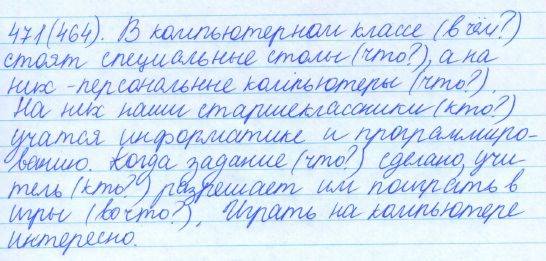 471(464). В компьютерном классе (в чём?)
стоят специальные столы (что?), а на
них - персональные компьютеры (что?).
На них наши старшеклассники (кто?)
учатся информатике и программиро-
ванию. Когда задание (что?) сделано, учи-
тель (кто?) разрешает им поиграть в
игры (во что?). Играть на компьютере
интересно.